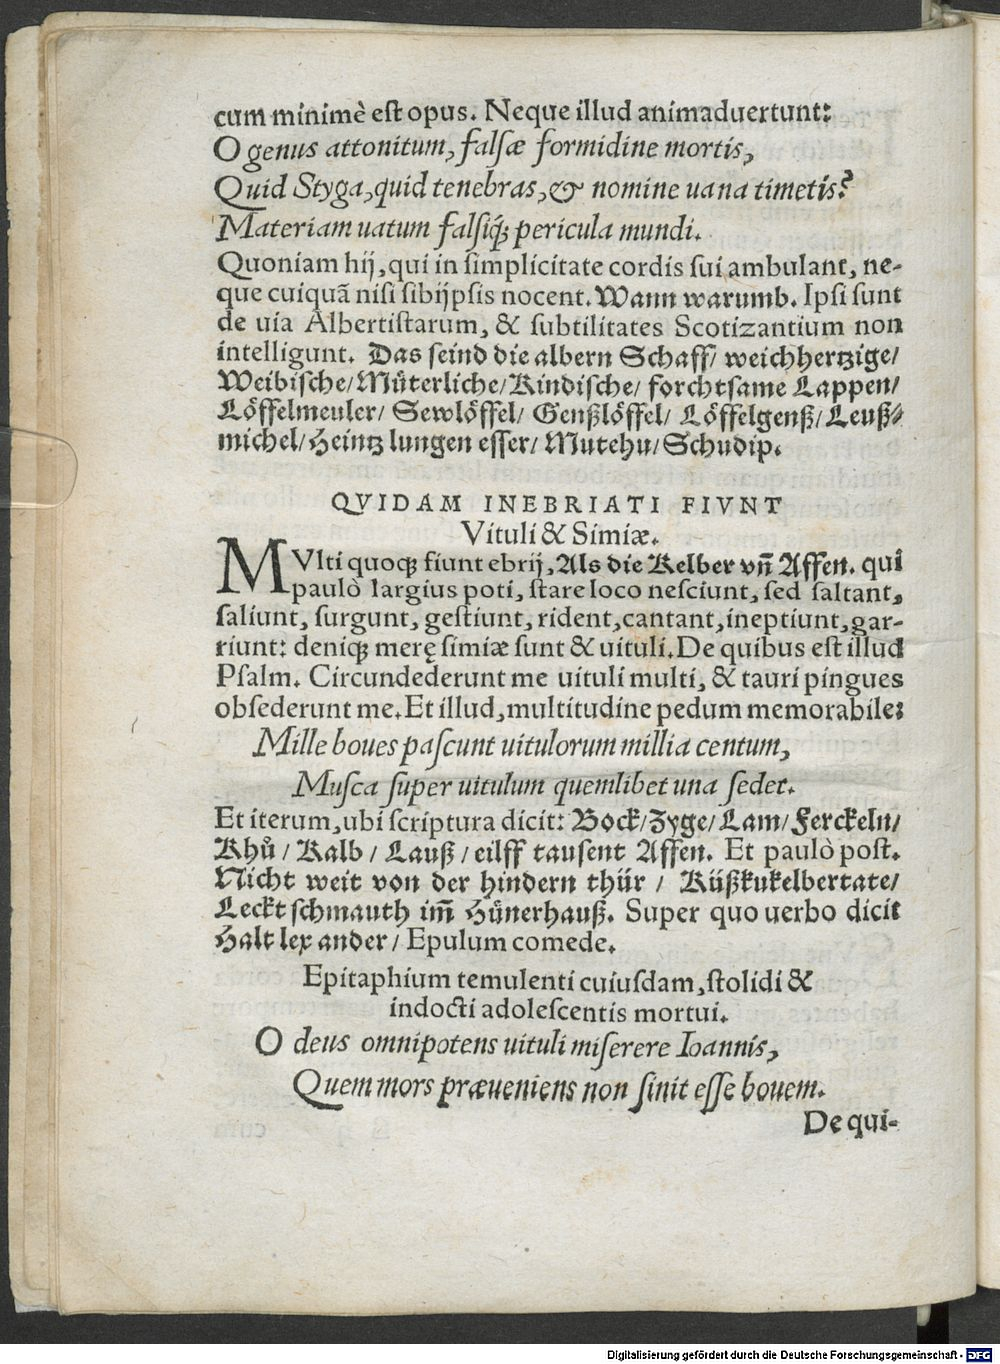 cum minimè est opus. Neque illud animaduertunt:
O genus attonitum, falsæ formidine mortis,
Quid Styga, quid tenebras, & nomine uana timetis?
Materiam uatum falsiq́; pericula mundi.
Quoniam hij, qui in simplicitate cordis sui ambulant, ne-
que cuiquã nisi sibijpsis nocent. Wann warumb. Ipsi sunt
de uia Albertistarum, & subtilitates Scotizantium non
intelligunt. Das seind die albern Schaff/ weichhertzige/
Weibische/ Müterliche/ Kindische/ forchtsame Lappen/
Löffelmeuler/ Sewlöffel/ Genßlöffel/ Löffelgenß/ Leuß⸗
michel/ Heintz lungen esser/ Mutehu/ Schudip.
QVIDAM INEBRIATI FIVNT
Vituli & Simiæ.
MVlti quoq; fiunt ebrij, Als die Kelber vñ Affen. qui
paulò largius poti, stare loco nesciunt, sed saltant,
saliunt, surgunt, gestiunt, rident, cantant, ineptiunt, gar-
riunt: deniq; merę simiæ sunt & uituli. De quibus est illud
Psalm. Circundederunt me uituli multi, & tauri pingues
obsederunt me. Et illud, multitudine pedum memorabile:
Mille boues pascunt uitulorum millia centum,
Musca super uitulum quemlibet una sedet.
Et iterum, ubi scriptura dicit: Bock/ Zyge/ Lam/ Ferckeln/
Khů/ Kalb/ Lauß/ eilff tausent Affen. Et paulò post.
Nicht weit von der hindern thür/ Küßkukelbertate/
Leckt schmauth im̃ Hünerhauß. Super quo uerbo dicit
Halt lex ander/ Epulum comede.
Epitaphium temulenti cuiusdam, stolidi &
indocti adolescentis mortui.
O deus omnipotens uituli miserere Ioannis,
Quem mors præueniens non sinit esse bouem.
De qui-
Digitalisierung gefördert durch die Deutsche Forschungsgemeinschaft - DFG